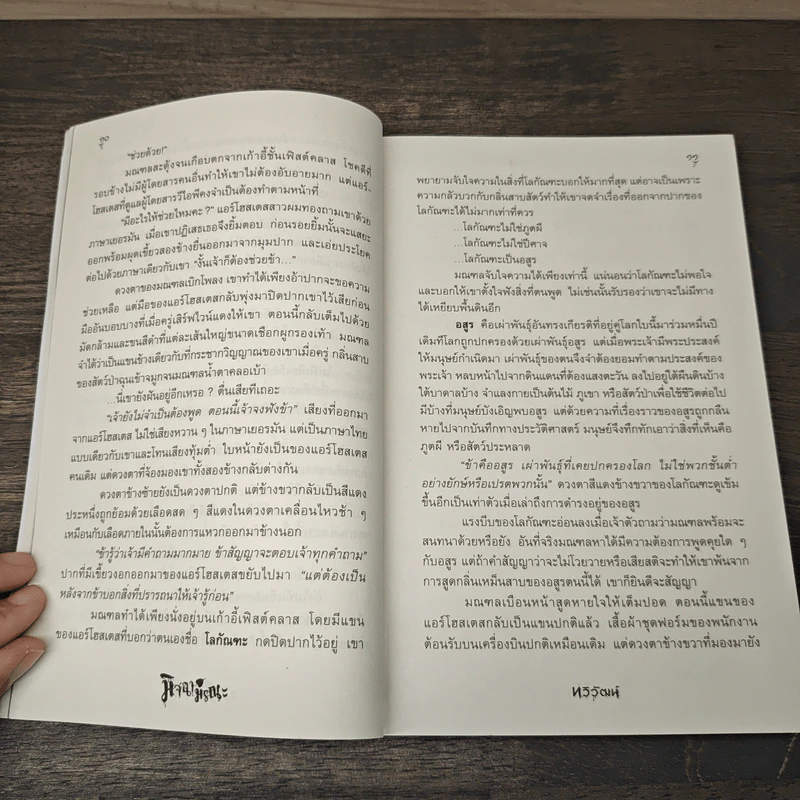 ๑๐
"ช่วยด้วย!"
มณฑลสะดุ้งจนเกือบตกจากเก้าอี้ชั้นเฟิสต์คลาส โชคดีที่
รอบข้างไม่มีผู้โดยสารคนอื่นทำให้เขาไม่ต้องอับอายมาก แต่แอร์-
โฮสเตสที่ดูแลผู้โดยสารวีไอพีคงจำเป็นต้องทำตามหน้าที่
"มีอะไรให้ช่วยไหมคะ?" แอร์โฮสเตสสาวผมทองถามเขาด้วย
ภาษาเยอรมัน เมื่อเขาปฏิเสธเธอจึงยิ้มตอบ ก่อนรอยยิ้มนั้นจะแสยะ
ออกพร้อมผุดเขี้ยวสองข้างยื่นออกมาจากมุมปาก และเอ่ยประโยค
ต่อไปด้วยภาษาเดียวกับเขา "งั้นเจ้าก็ต้องช่วยข้า..."
ดวงตาของมณฑลเบิกโพลง เขาทำได้เพียงอ้าปากจะขอความ
ช่วยเหลือ แต่มือของแอร์โฮสเตสกลับพุ่งมาปิดปากเขาไว้เสียก่อน
มืออันบอบบางที่เมื่อครู่เสิร์ฟไวน์แดงให้เขา ตอนนี้กลับเต็มไปด้วย
มัดกล้ามและขนสีดำที่แต่ละเส้นใหญ่ขนาดเชือกผูกรองเท้า มณฑล
จำได้ว่าเป็นแขนข้างเดียวกับที่กระชากวิญญาณของเขาเมื่อครู่ กลิ่นสาบ
ของสัตว์ป่าฉุนเข้าจมูกจนมณฑลน้ำตาคลอเบ้า
...นี่เขายังฝันอยู่อีกเหรอ ? ตื่นเสียทีเถอะ
"เจ้ายังไม่จำเป็นต้องพูด ตอนนี้เจ้าจงฟังข้า" เสียงที่ออกมา
จากแอร์โฮสเตส ไม่ใช่เสียงหวาน ๆ ในภาษาเยอรมัน แต่เป็นภาษาไทย
แบบเดียวกับเขาและโทนเสียงทุ้มต่ำ ใบหน้ายังเป็นของแอร์โฮสเตส
คนเดิม แต่ดวงตาที่จ้องมองเขาทั้งสองข้างกลับต่างกัน
ดวงตาข้างซ้ายยังเป็นดวงตาปกติ แต่ข้างขวากลับเป็นสีแดง
ประหนึ่งถูกย้อมด้วยเลือดสด ๆ สีแดงในดวงตาเคลื่อนไหวช้า ๆ
เหมือนกับเลือดภายในนั้นต้องการแหวกออกมาข้างนอก
"ข้ารู้ว่าเจ้ามีคำถามมากมาย ข้าสัญญาจะตอบเจ้าทุกคำถาม"
ปากที่มีเขี้ยวงอกออกมาของแอร์โฮสเตสขยับไปมา "แต่ต้องเป็น
หลังจากข้าบอกสิ่งที่ปรารถนาให้เจ้ารู้ก่อน"
มณฑลทำได้เพียงนั่งอยู่บนเก้าอี้เฟิสต์คลาส โดยมีแขน
ของแอร์โฮสเตสที่บอกว่าตนเองชื่อ โลกัณฑะ กดปิดปากไว้อยู่ เขา
พยายามจับใจความในสิ่งที่โลกัณฑะบอกให้มากที่สุด แต่อาจเป็นเพราะ
ความกลัวบวกกับกลิ่นสาบสัตว์ทำให้เขาจดจำเรื่องที่ออกจากปากของ
โลกัณฑะได้ไม่มากเท่าที่ควร
...โลกัณฑะไม่ใช่ภูตผี
...โลกัณฑะไม่ใช่ปีศาจ
...โลกัณฑะเป็นอสูร
มณฑลจับใจความได้เพียงเท่านี้ แน่นอนว่าโลกัณฑะไม่พอใจ
และบอกให้เขาตั้งใจฟังสิ่งที่ตนพูด ไม่เช่นนั้นรับรองว่าเขาจะไม่มีทาง
ได้เหยียบพื้นดินอีก
อสูร คือเผ่าพันธุ์อันทรงเกียรติที่อยู่คู่โลกใบนี้มาร่วมหมื่นปี
เดิมทีโลกถูกปกครองด้วยเผ่าพันธุ์อสูร แต่เมื่อพระเจ้ามีพระประสงค์
ให้มนุษย์กำเนิดมา เผ่าพันธุ์ของตนจึงจำต้องยอมทำตามประสงค์ของ
พระเจ้า หลบหน้าไปจากดินแดนที่ต้องแสงตะวัน ลงไปอยู่ใต้ผืนดินบ้าง
ใต้บาดาลบ้าง จำแลงกายเป็นต้นไม้ ภูเขา หรือสัตว์ป่าเพื่อใช้ชีวิตต่อไป
มีบ้างที่มนุษย์บังเอิญพบอสูร แต่ด้วยความที่เรื่องราวของอสูรถูกกลืน
หายไปจากบันทึกทางประวัติศาสตร์ มนุษย์จึงทึกทักเอาว่าสิ่งที่เห็นคือ
ภูตผี หรือสัตว์ประหลาด
"ข้าคืออสูร เผ่าพันธุ์ที่เคยปกครองโลก ไม่ใช่พวกชั้นต่ำ
อย่างยักษ์หรือเปรตพวกนั้น" ดวงตาสีแดงข้างขวาของโลกัณฑะดูเข้ม
ขึ้นอีกเป็นเท่าตัวเมื่อเล่าถึงการดำรงอยู่ของอสูร
แรงบีบของโลกัณฑะอ่อนลงเมื่อเจ้าตัวถามว่ามณฑลพร้อมจะ
สนทนาด้วยหรือยัง อันที่จริงมณฑลหาได้มีความต้องการพูดคุยใด ๆ
กับอสูร แต่ถ้าคำสัญญาว่าจะไม่โวยวายหรือเสียสติจะทำให้เขาพ้นจาก
การสูดกลิ่นเหม็นสาบของอสูรตนนี้ได้ เขาก็ยินดีจะสัญญา
มณฑลเบือนหน้าสูดหายใจให้เต็มปอด ตอนนี้แขนของ
แอร์โฮสเตสกลับเป็นแขนปกติแล้ว เสื้อผ้าชุดฟอร์มของพนักงาน
ต้อนรับบนเครื่องบินปกติเหมือนเดิม แต่ดวงตาข้างขวาที่มองมายัง
ทวิวัฒน์